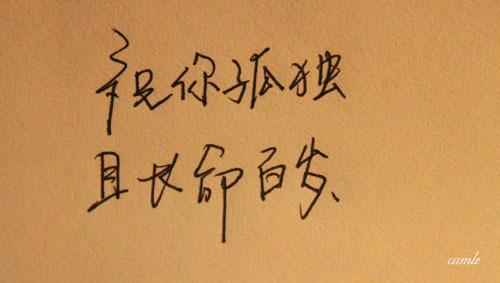 祝你孤独
且长命百岁、
camle